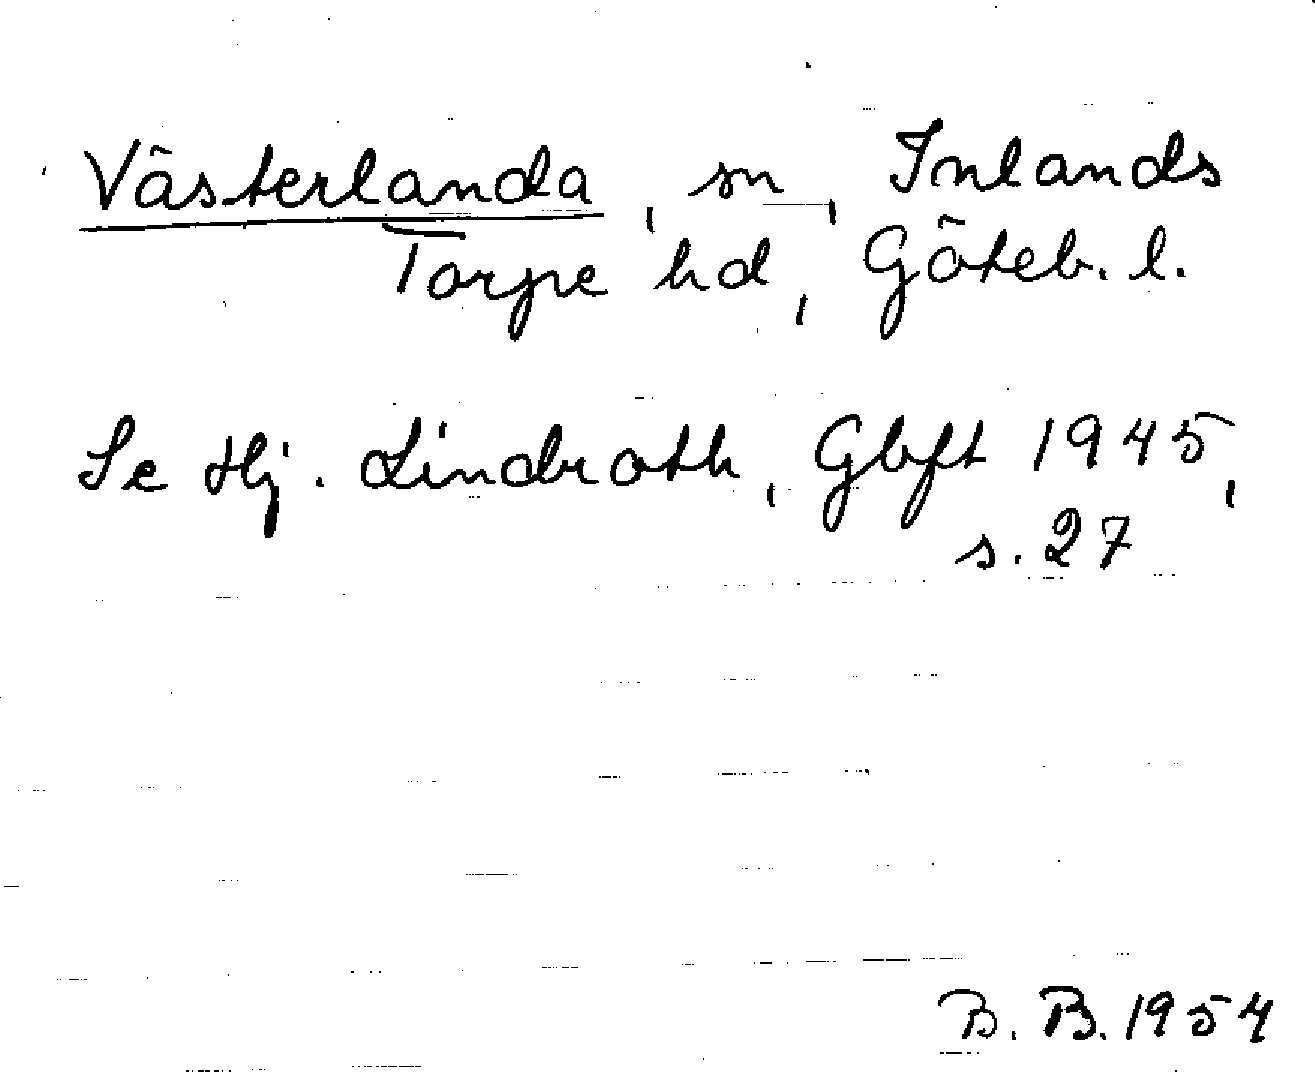 Västerlanda, sn, Inlands
Torpe hd, Göteb. l.
Se Hj. Lindroth, Gbft 1945,
s. 27
B. B. 1954